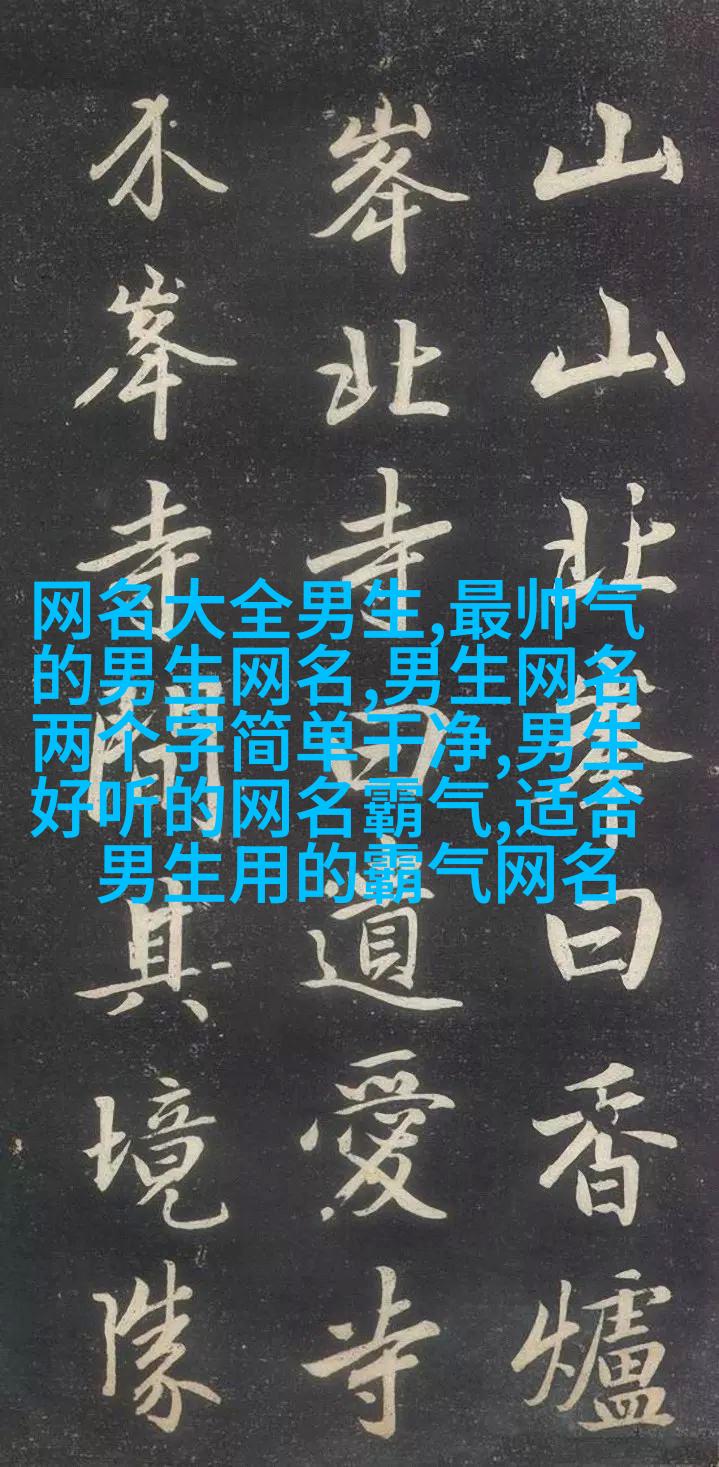 山山北峯曰香爐
峯北寺曰遺愛寺
介峯寺間其境勝
网名大全男生,最帅气
的男生网名,男生网名
两个字简单干净,男生
好听的网名霸气,适合
男生用的霸气网名